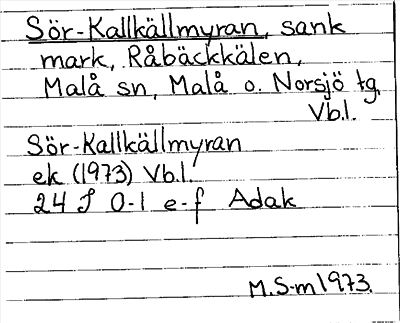 Sör-Kallkällmyran, sank
mark, Råbäckkälen,
Malå sn, Malå o. Norsjö tg
Vb.l.
Sör-Kallkällmyran
ek (1973) Vb.l.
24 J 0-1 e-f Adak
M.S-m 1973.